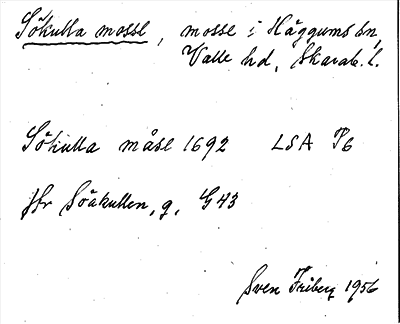 Sökulla mosse, mosse i Häggums sn,
Valle hd, Skarab. l.
Sökulla måse 1692 LSA P6
jfr Söäkullen, g, G43
Sven Friberg 1956